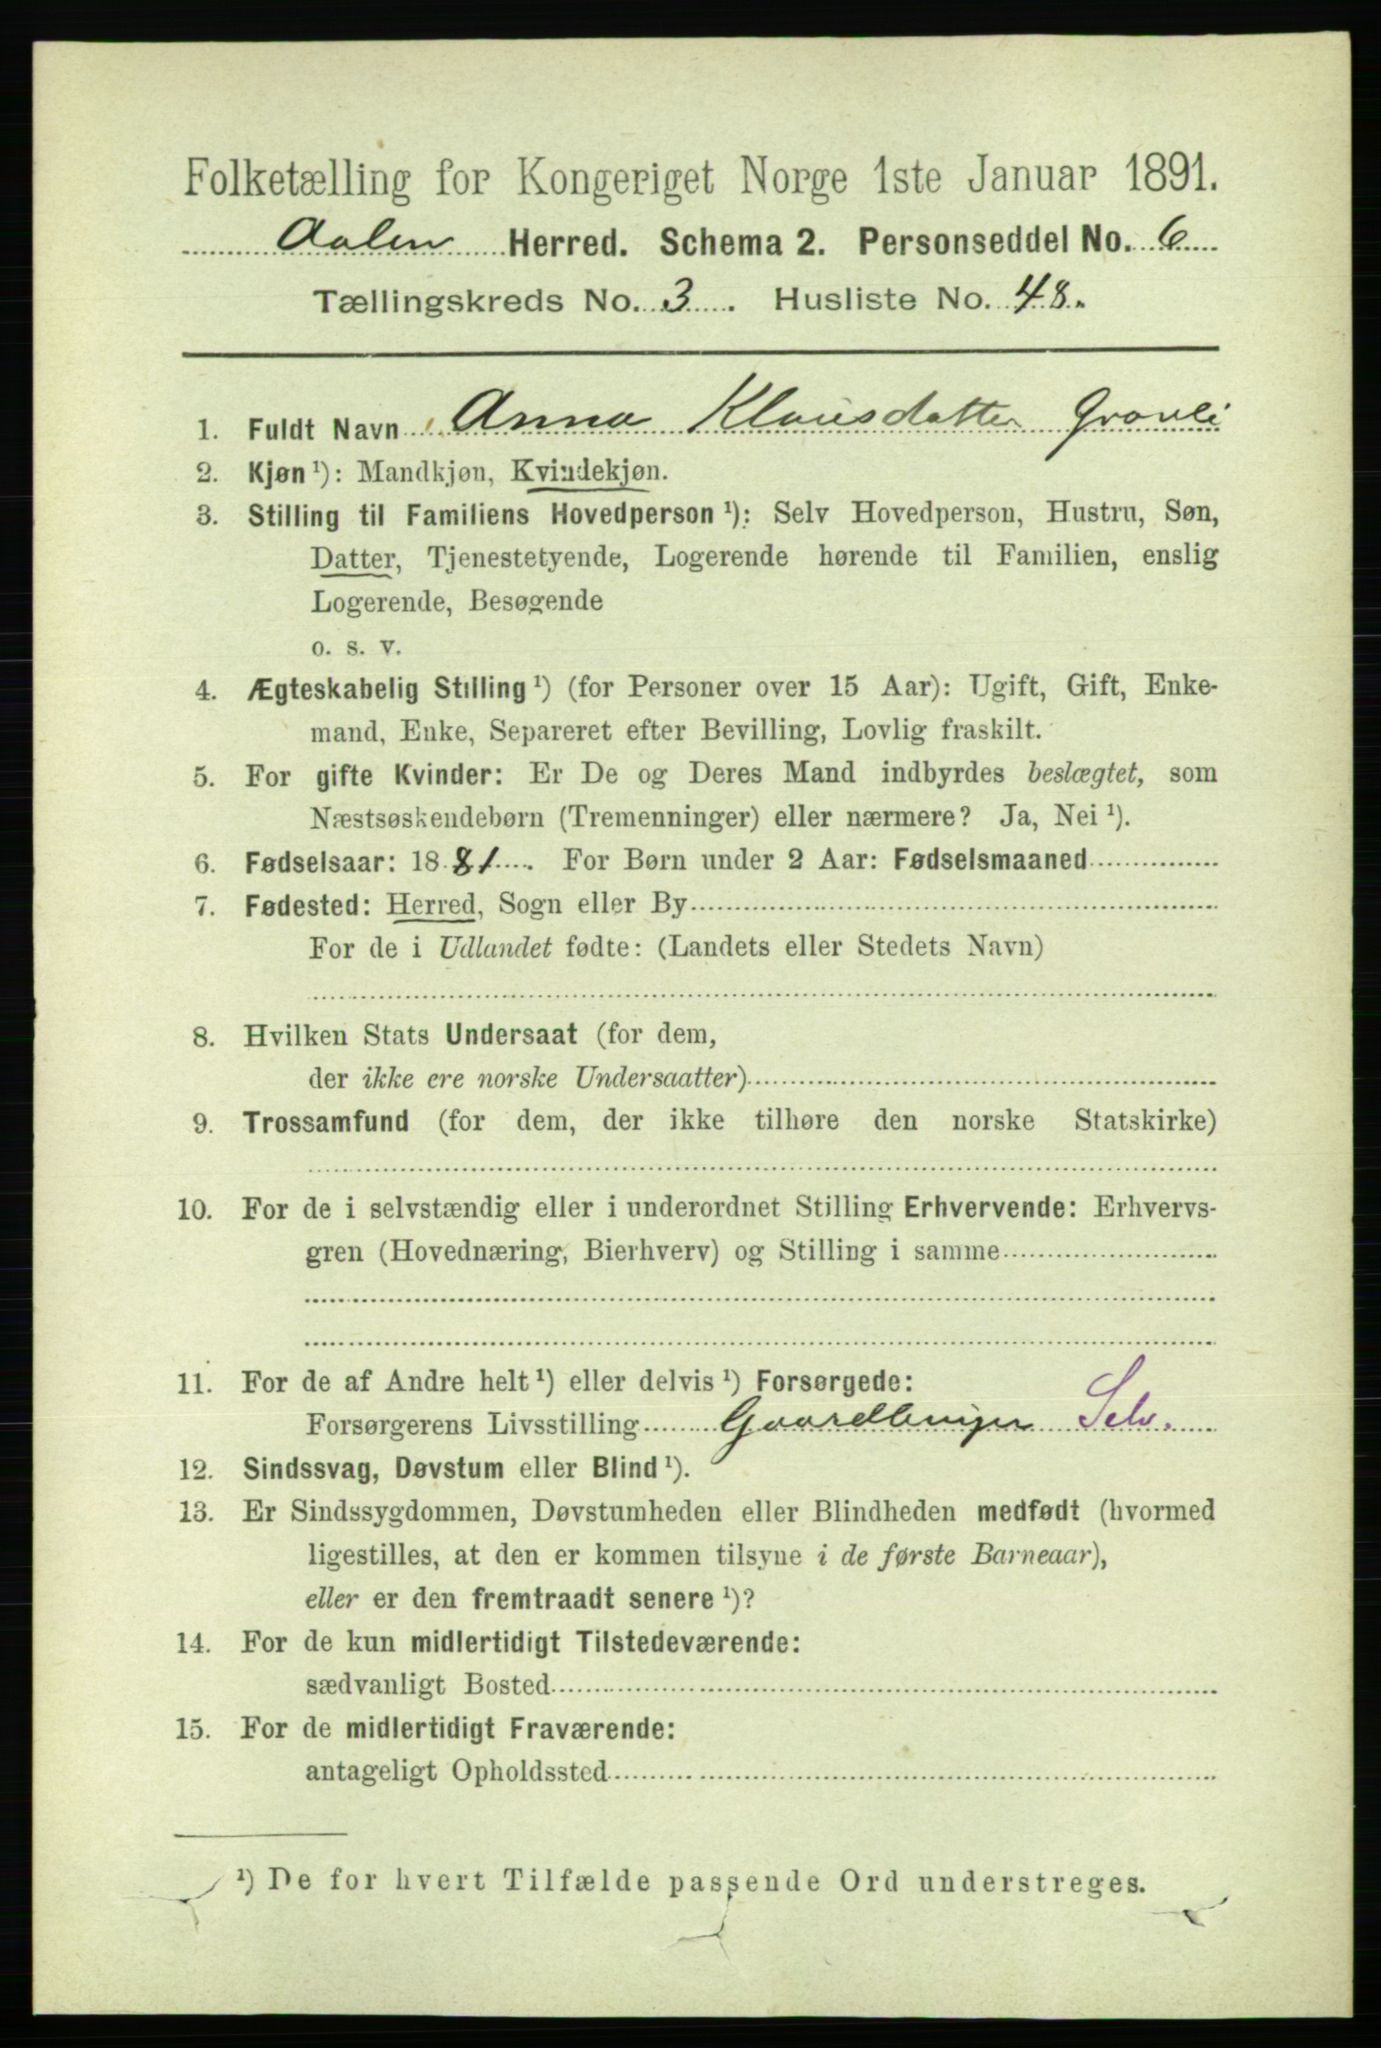 Folketælling for Kongeriget Norge 1ste Januar 1891.
Aalen Herred. Schema 2. Personseddel No. 6
Tællingskreds No. 3. Husliste No. 48.
1. Fuldt Navn Anna Klausdatter Graali
2. Kjøn ¹): Mandkjøn, Kvindekjøn.
3. Stilling til Familiens Hovedperson ¹): Selv Hovedperson, Hustru, Søn,
Datter, Tjenestetyende, Logerende hørende til Familien, enslig
Logerende, Besøgende
o. s. v.
4. Ægteskabelig Stilling ¹) (for Personer over 15 Aar): Ugift, Gift, Enke-
mand, Enke, Separeret efter Bevilling, Lovlig fraskilt.
5. For gifte Kvinder: Er De og Deres Mand indbyrdes beslægtet, som
Næstsøskendebørn (Tremenninger) eller nærmere? Ja, Nei ¹).
6. Fødselsaar: 1881. For Børn under 2 Aar: Fødselsmaaned
7. Fødested: Herred, Sogn eller By
For de i Udlandet fødte: (Landets eller Stedets Navn)
8. Hvilken Stats Undersaat (for dem,
der ikke ere norske Undersaatter)
9. Trossamfund (for dem, der ikke tilhøre den norske Statskirke)
10. For de i selvstændig eller i underordnet Stilling Erhvervende: Erhvervs-
gren (Hovednæring, Bierhverv) og Stilling i samme
11. For de af Andre helt ¹) eller delvis ¹) Forsørgede:
Forsørgerens Livsstilling Gaardbruger Selv.
12. Sindssvag, Døvstum eller Blind ¹).
13. Er Sindssygdommen, Døvstumheden eller Blindheden medfødt (hvormed
ligestilles, at den er kommen tilsyne i de første Barneaar),
eller er den fremtraadt senere ¹)?
14. For de kun midlertidigt Tilstedeværende:
sædvanligt Bosted
15. For de midlertidigt Fraværende:
antageligt Opholdssted
¹) De for hvert Tilfælde passende Ord understreges.